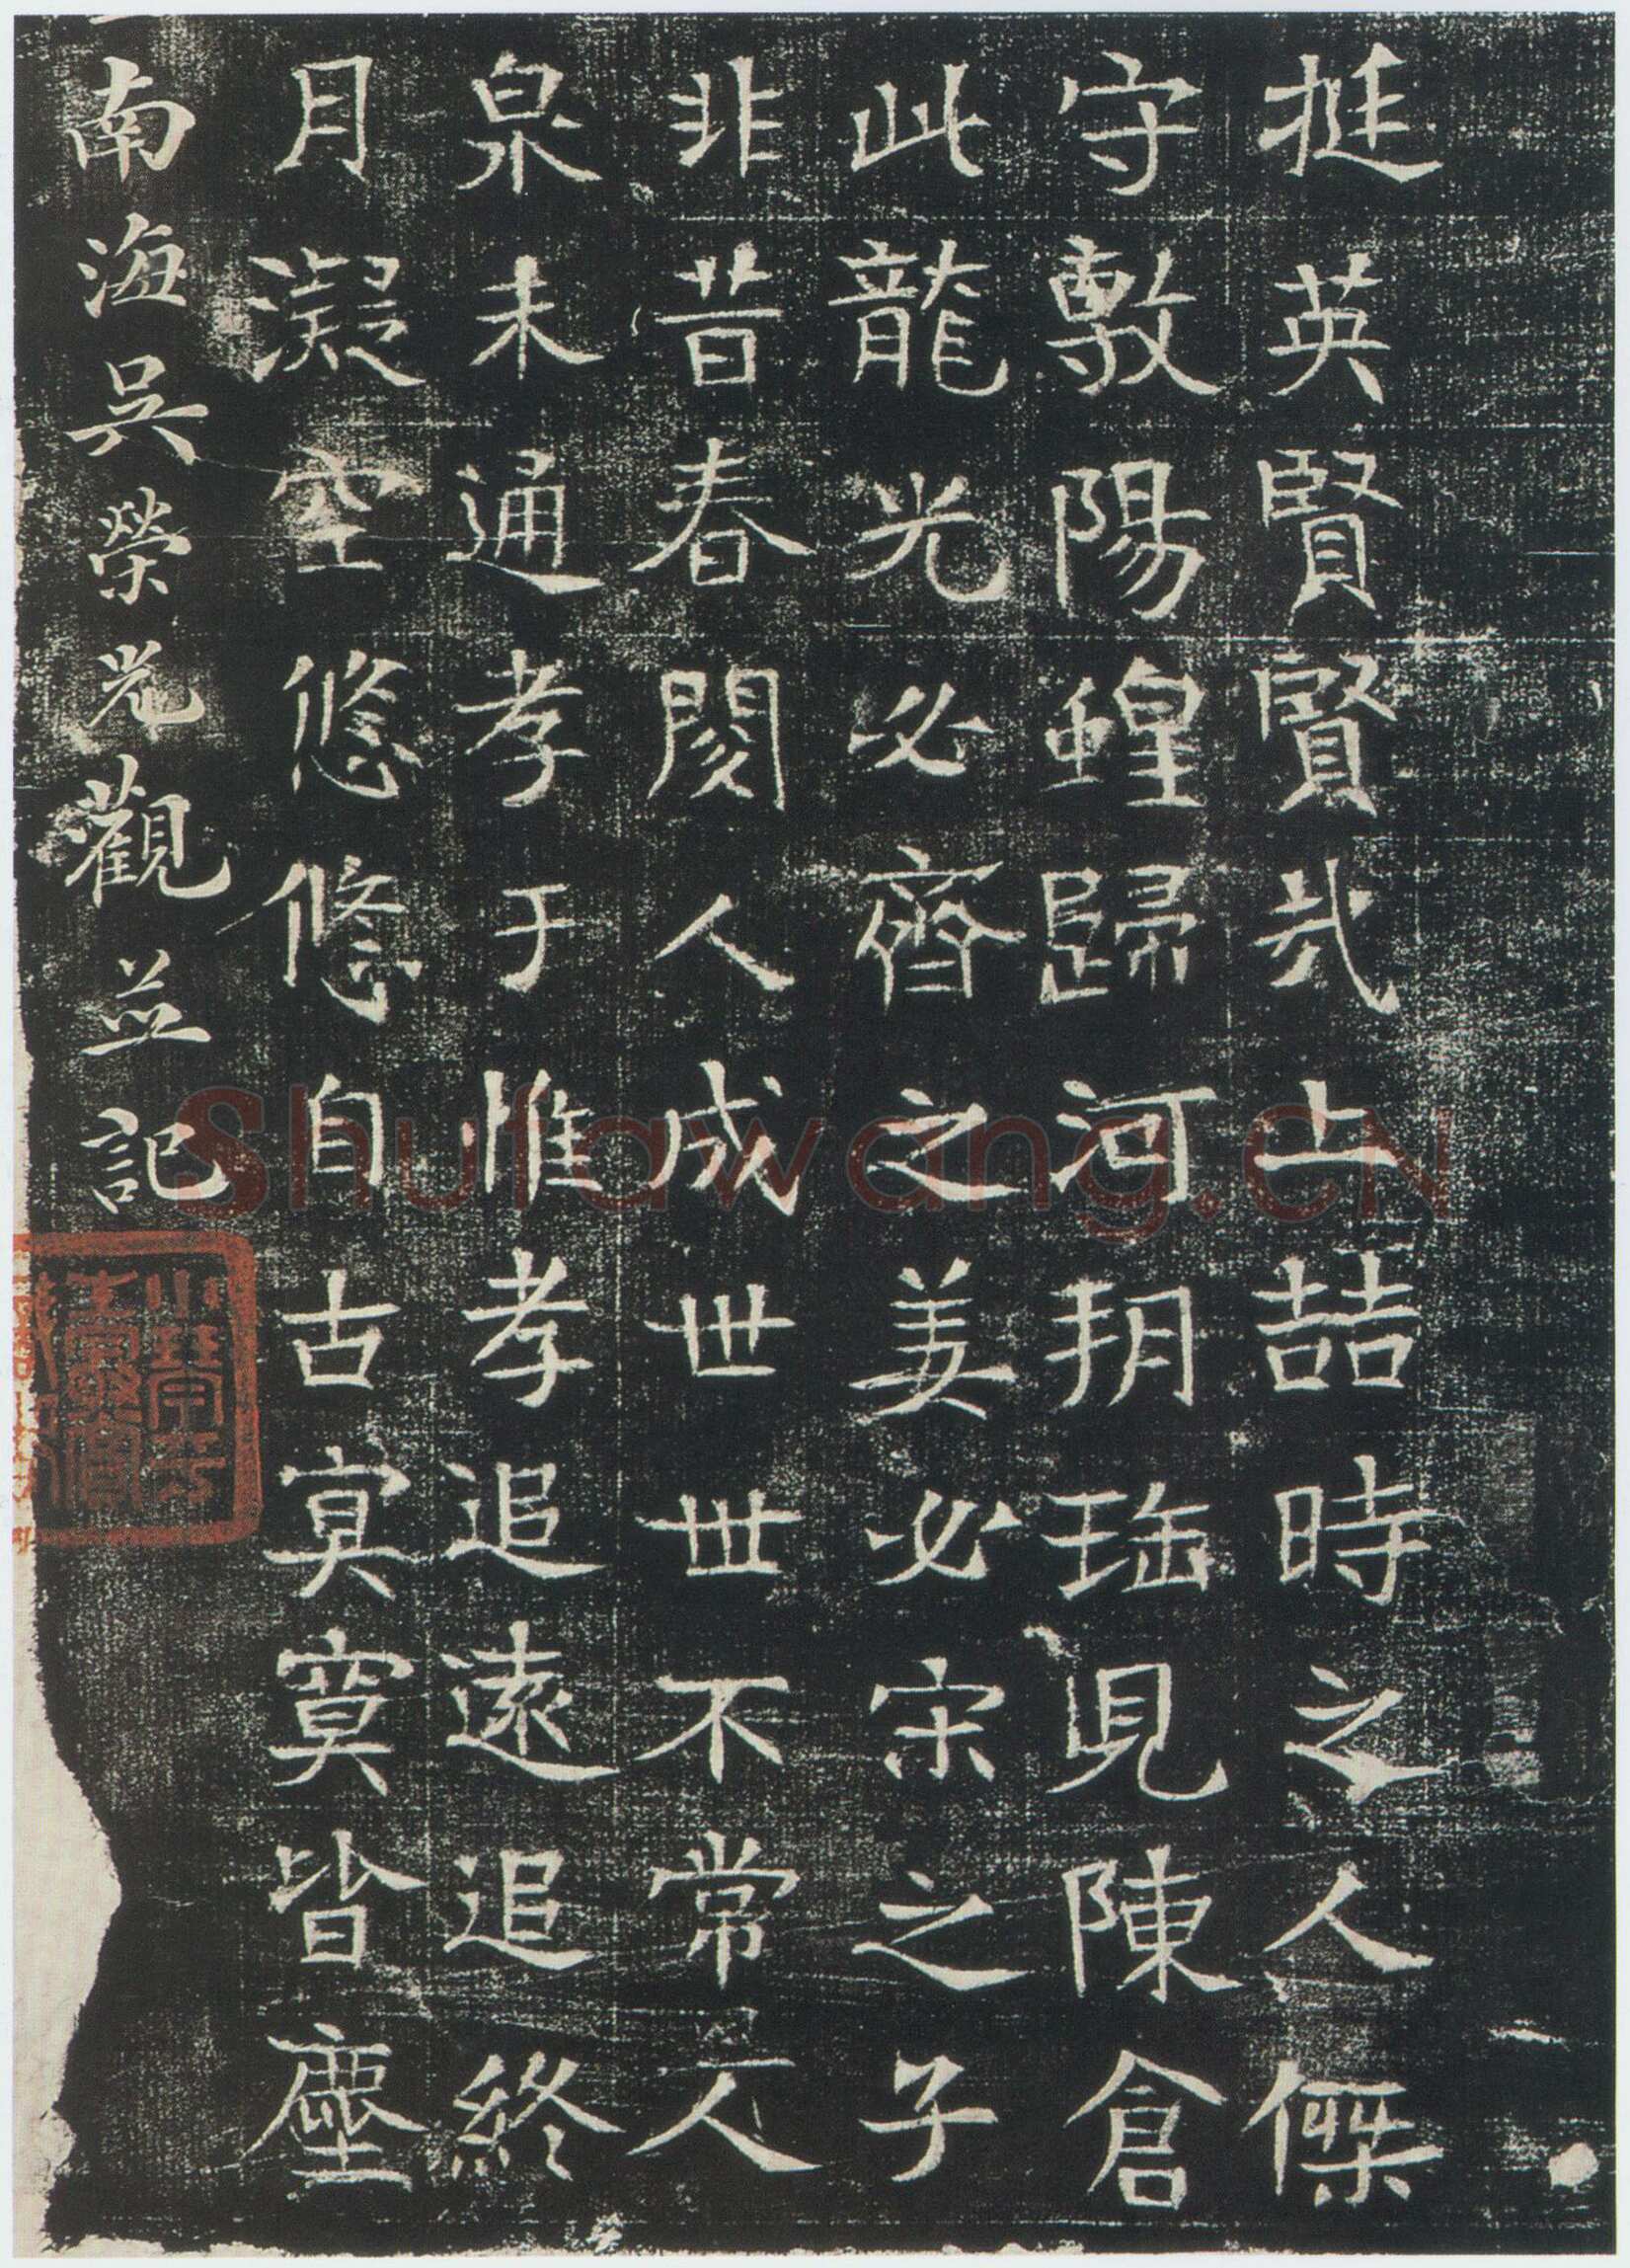 挺英賢賢㢤上喆時之人傑
守敷陽蝗歸河玥珤見陳倉
此龍光必齊之美必宋之子
非昔春閱人成世世不常人
泉未通孝于惟孝追遠追終
月凝空悠悠自古寞寞皆塵
南海吳榮光觀並記
Shufawang.CN